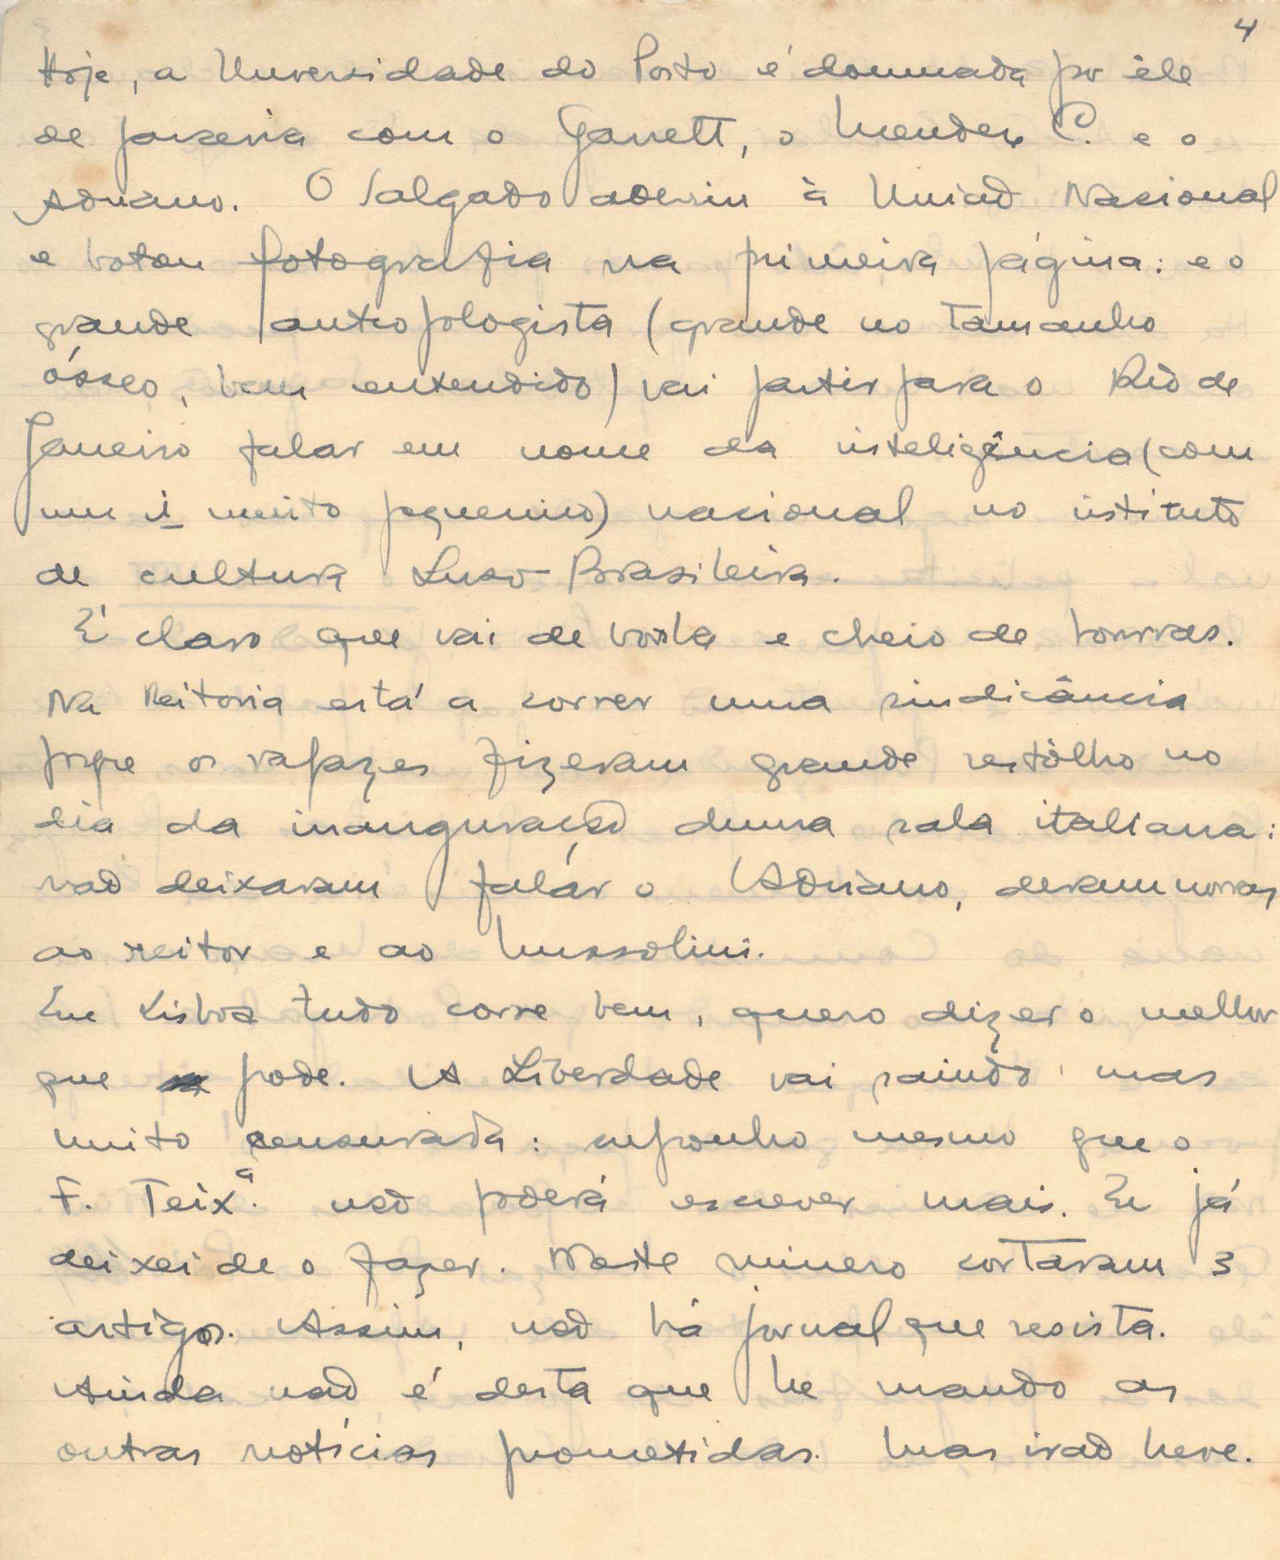 4
Hoje, a Universidade do Porto é dominada por êle
de parceria com o Garrett, o Mendes C. e o
Adriano. O Salgado aderiu à União Nacional
e botou fotografia na primeira página: e o
grande antropologista (grande no tamanho
ósseo, bem entendido) vai partir para o Rio de
Janeiro falar em nome da inteligência (com
um i muito pequenino) nacional no instituto
de cultura Luso-Brasileira.
É claro que vai de borla e cheio de honras.
Na Reitoria está a correr uma sindicância
porque os rapazes fizeram grande restôlho no
dia da inauguração duma sala italiana:
não deixaram falár o Adriano, deram morras
ao reitor e ao Mussolini.
Em Lisboa tudo corre bem, quero dizer o melhor
que pode. A Liberdade vai saindo mas
muito censurada: suponho mesmo que o
F. Teixª. não poderá escrever mais. Eu já
deixei de o fazer. Neste número cortaram 3
artigos. Assim, não há jornal que resista.
Ainda não é desta que lhe mando as
outras notícias prometidas. Mas irão breve.